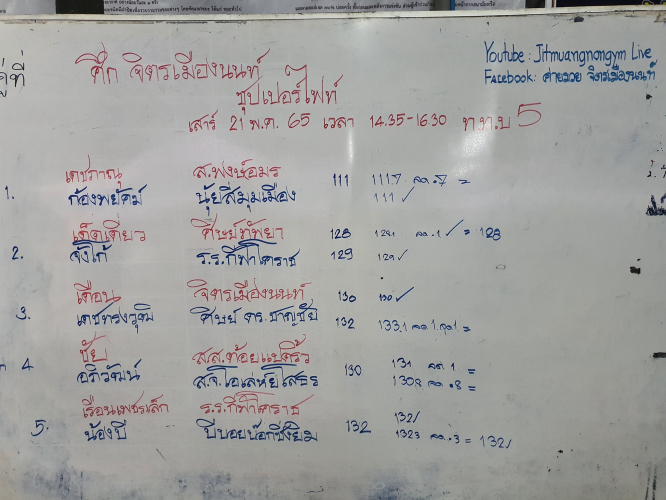 คู่ที่ ศึก จิตรเมืองนนท์
ซุปเปอร์ไฟท์
Youtube : Jitmuangnongym Live
Facebook: ค่ายมวย จิตรเมืองนนท์
เสาร์ 21 พ.ค. 65 เวลา 14.35-16.30 ท.ท.บ 5
เดชภาณุ ส.พงษ์อมร 111 111.7 ลด.7 =
1. ก้องพยัคฆ์ นุ้ยสี่มุมเมือง 111 ✓
เด็ดเดี่ยว ศิษย์ทัพยา 128 1281 ลด.1 ✓ = 128
2. จิงโก้ ร.ร.กีฬาโคราช 129 129 ✓
เดือน จิตรเมืองนนท์ 130 130 ✓
3. เดชทรงวุฒิ ศิษย์ ดร.ชาญชัย 132 133.1 ลด 1. =
ชัย ส.ส.ต้อยแปดริ้ว 131 ลด 1 =
4 อภิวัฒน์ ส.จ.โอเล่ห์ยโสธร 130 130.8 ลด .8 =
เรือนเพชรเล็ก ร.ร.กีฬาโคราช 132 132/
5. น้องบี บีบอยบ๊อกซิ่งยิม 1323 ลด .3 = 132/